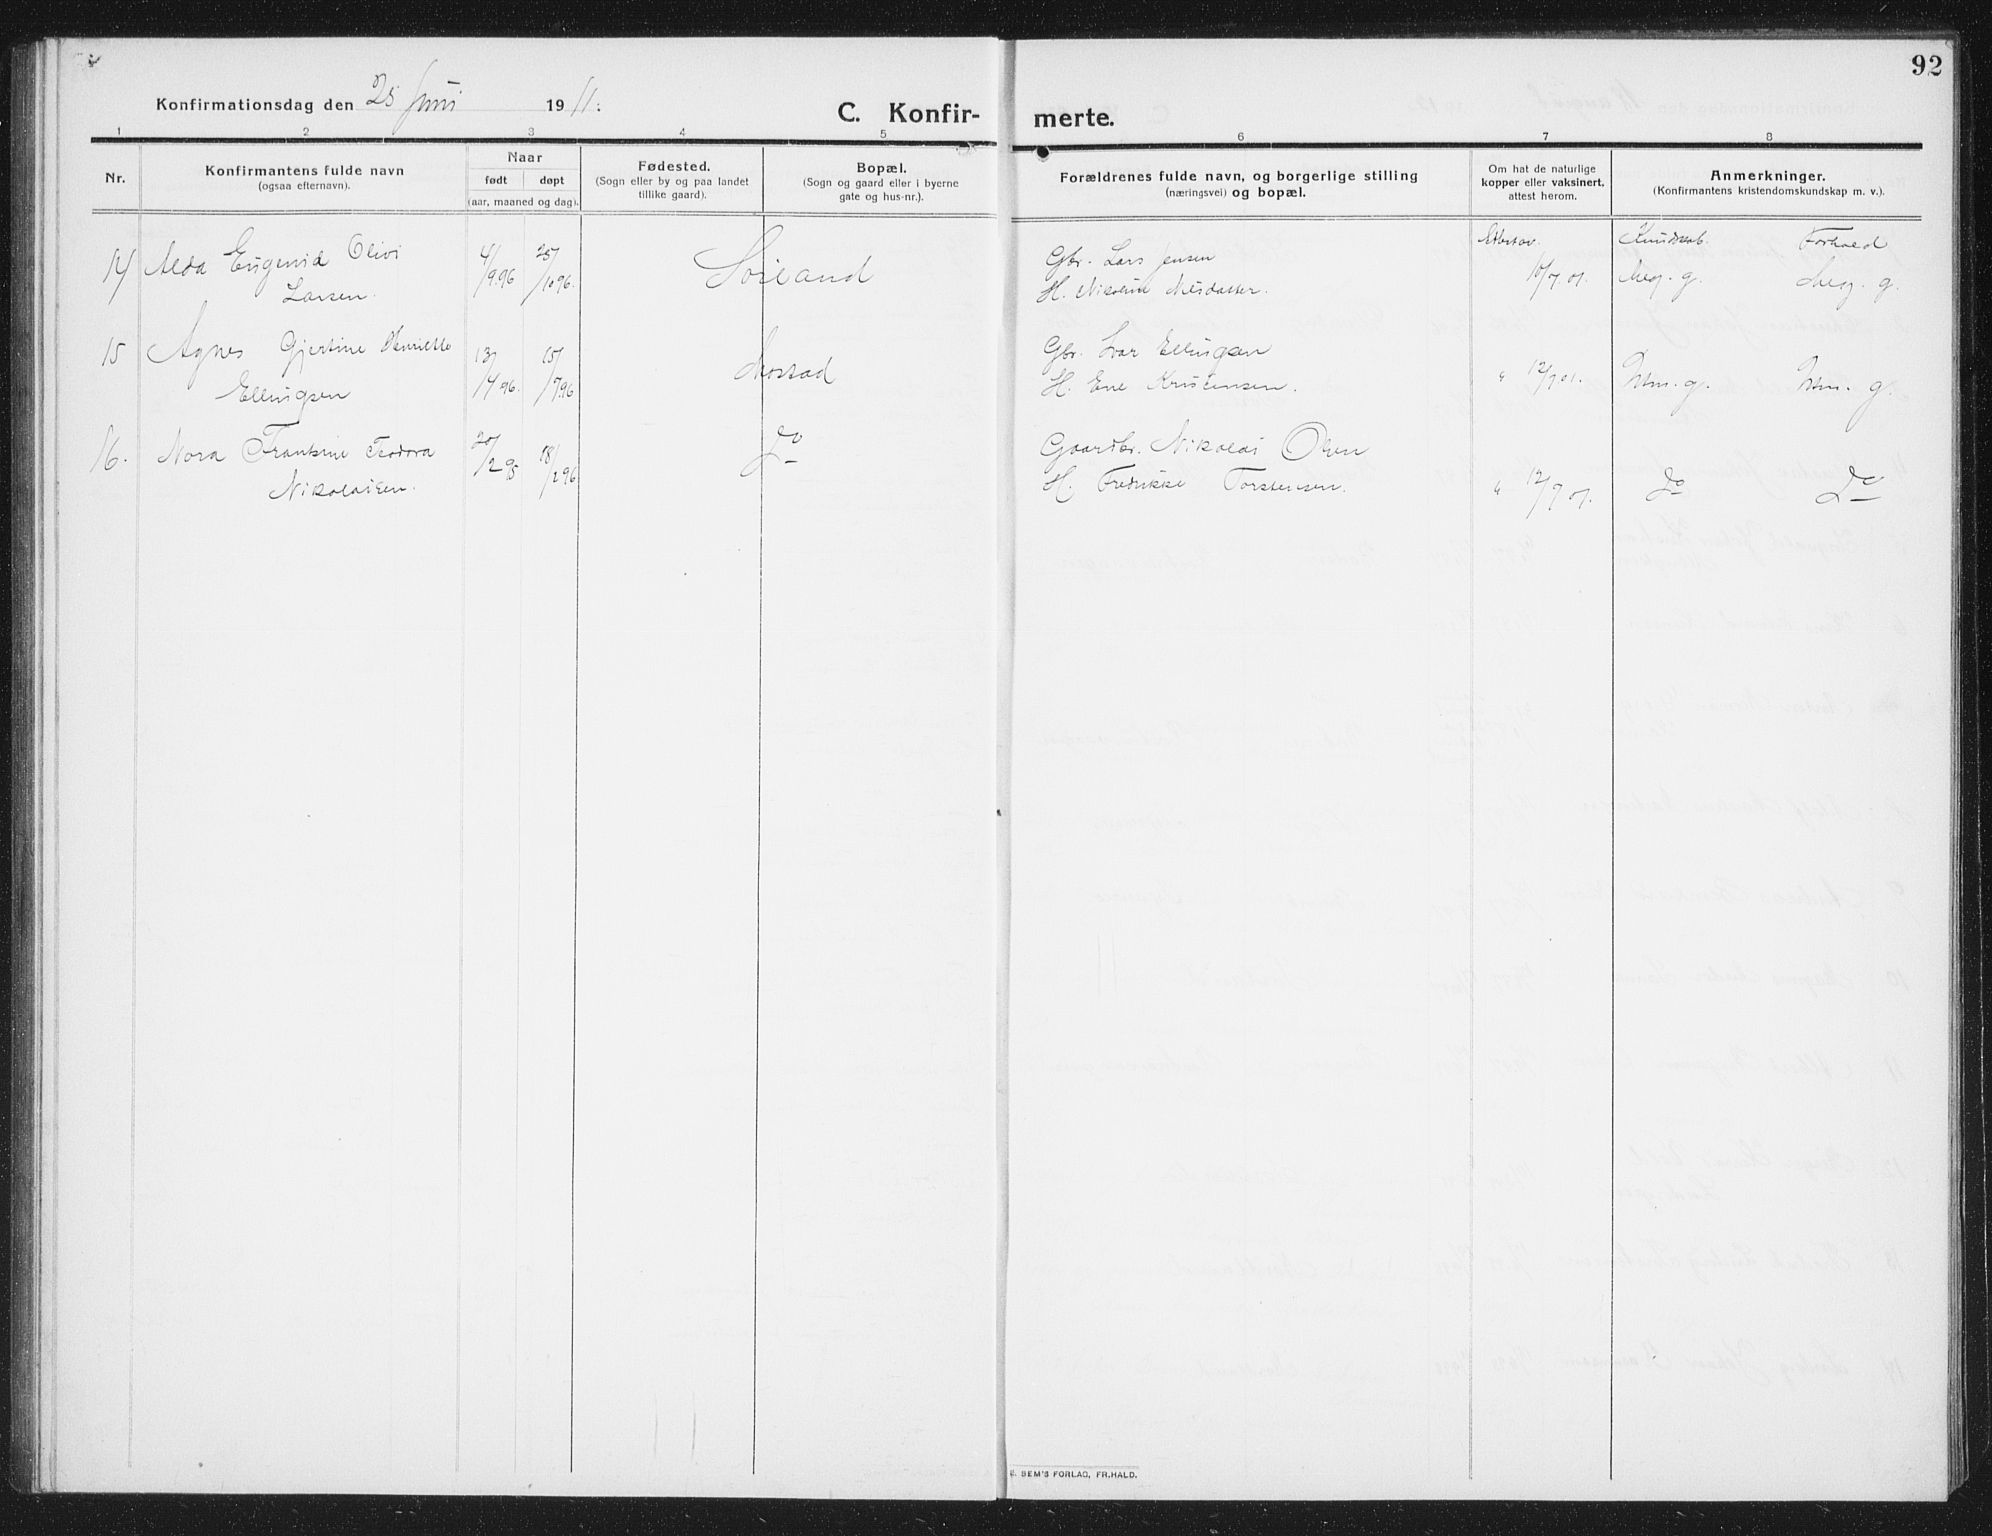 92
Konfirmationsdag den 25 Juni 1911.
C. Konfir- merte.
1 2 3 4 5 6 7 8
Nr.
Konfirmantens fulde navn
(ogsaa efternavn).
Naar
født døpt
(aar, maaned og dag).
Fødested.
(Sogn eller by og paa landet
tillike gaard).
Bopæl.
(Sogn og gaard eller i byerne
gate og hus-nr.).
Forældrenes fulde navn, og borgerlige stilling
(næringsvei) og bopæl.
Om hat de naturlige
kopper eller vaksinert,
attest herom.
Anmerkninger.
(Konfirmantens kristendomskundskap m. v.).
Kundskab. Forhold
14 Alda Eugenid Olivi 4/9 96 25/10 96 Sørland Gbr. Lars Jensen 10/7 01. Meg. g. Meg. g.
Larsen. H. Nikoline Nilsdatter.
15 Agnes Gjertine Henriette 13/4 96 15/7 96 Mostad Gbr. Ivar Ellingsen " 12/7 01. Utm. g. Utm. g.
Ellingsen H. Ene Kristensen.
16. Nora Frantsine Teodora 20/2 95 18/2 96 Do Gaardbr. Nikolai Olsen " 12/7 01. Do Do
Nikolaisen. H. Fredrikke Torstensen.
SEM'S FORLAG, FR.HALD.